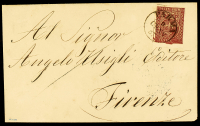 Al Signor
Angelo Usigli Editore
Firenze